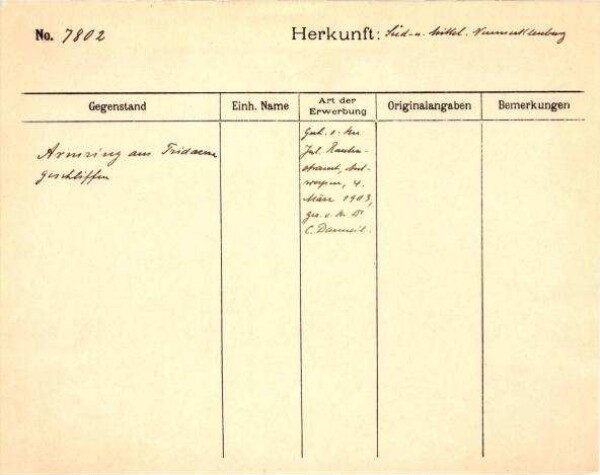 No. 7802 Herkunft: Süd- u. Mittel. Neumecklenburg
Gegenstand Einh. Name Art der Erwerbung Originalangaben Bemerkungen
Armring aus Tridacna
geschliffen
Gesch. v. Herrn
Jul. Rauten-
strauch, Ant-
werpen, 4.
März 1903,
ges. v. H. Dr
C. Danneil.